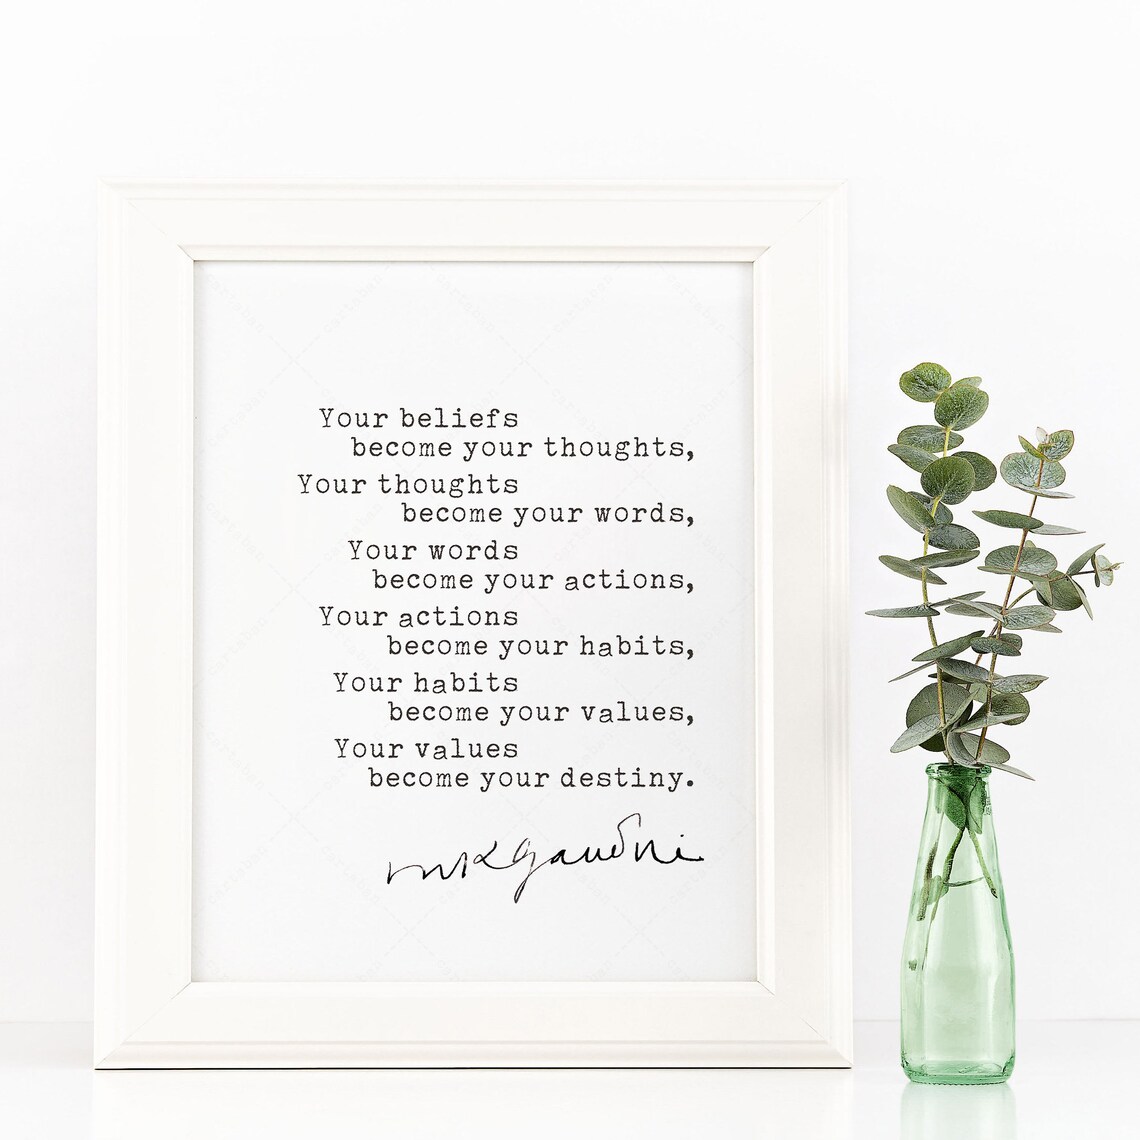 Your beliefs
become your thoughts,
Your thoughts
become your words,
Your words
become your actions,
Your actions
become your habits,
Your habits
become your values,
Your values
become your destiny.
mkgandhi